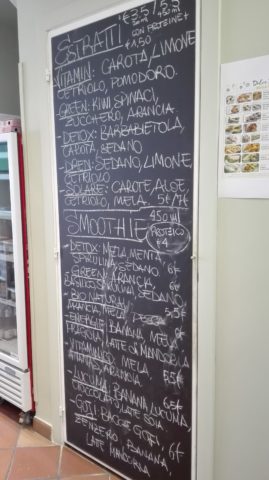 ESTRATTI €3,5/5,5
CON PROTEINE+
€1,50
VITAMIN: CAROTA/LIMONE
CETRIOLO, POMODORO.
GREEN: KIWI SPINACI,
ZUCCHERO, ARANCIA.
-DETOX: BARBABIETOLA,
CAROTA, SEDANO
-DREN: SEDANO, LIMONE,
CETRIOLO
-SOLARE: CAROTE, ALOE,
CETRIOLO, MELA. 5€/7€
SMOOTHIE 450 ml
PROTEICO
€4
-DETOX: MELA, MENTA
SPIRULINA, SEDANO. 6€
-GREEN: ARANCIA,
BASILICO, SEDANO,
-BIO NATURAL
ARANCIA, MELA, PESCA 5,5€
-ENERGIE: BANANA, MELA
FRAGOLA, LATE DI MANDORLA
-VITAMINICO: MELA
ANANAS, ARANCIA 5,5€
-LUCUMA: BANANA LUCUMA,
CIOCCOLATO, LATE SOIA 6,5€
-GOJI: BACCHE GOJI,
ZENZERO, BANANA, 6€
LATE MANDORLA